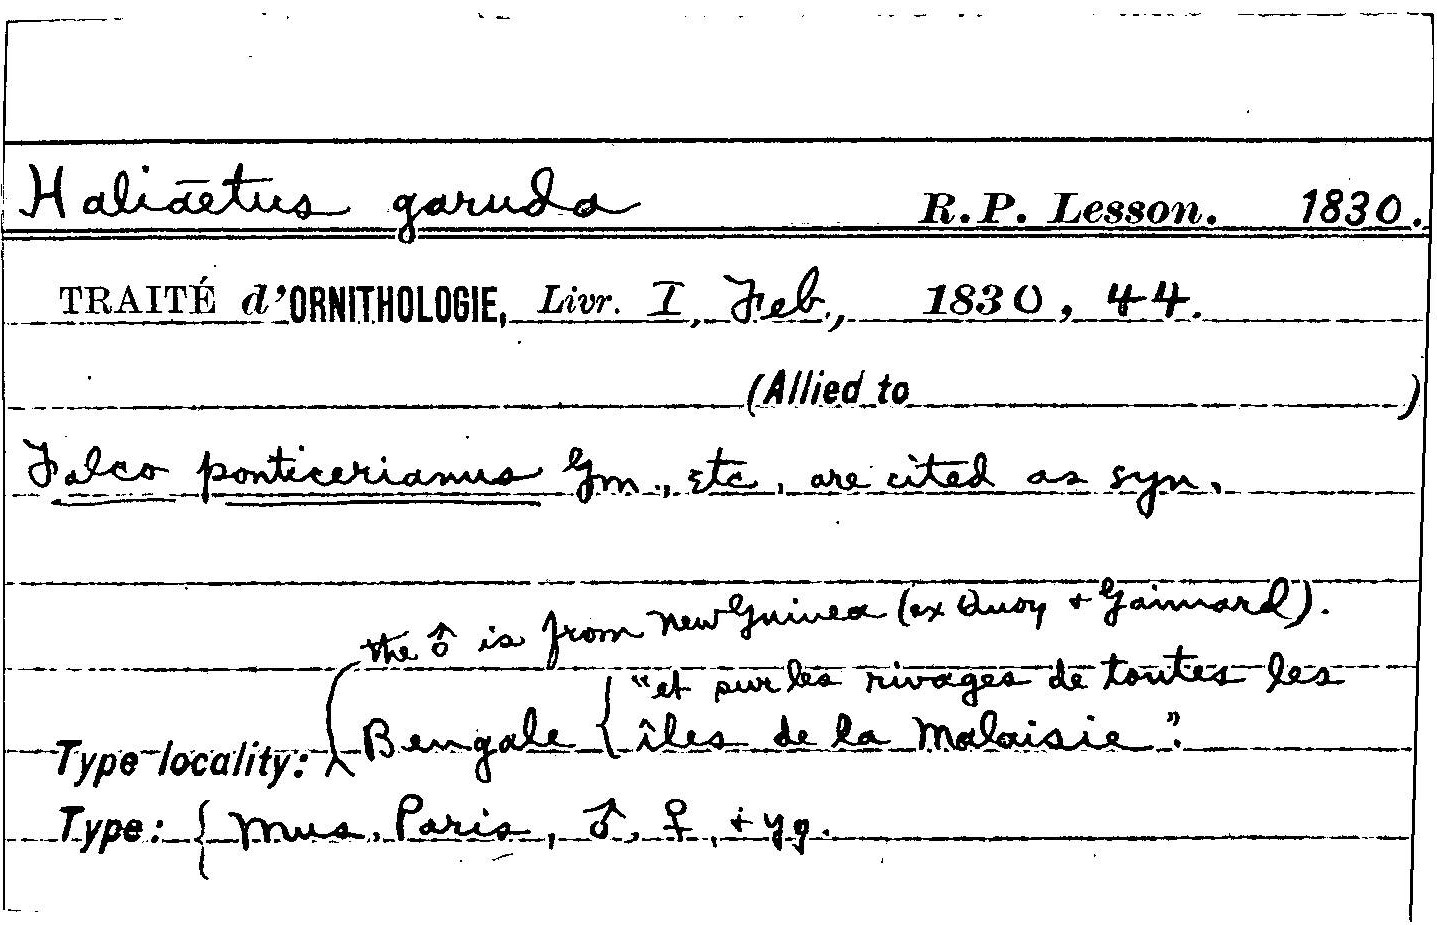 Haliäetus garuda R.P. Lesson. 1830.
TRAITÉ d'ORNITHOLOGIE, Livr. I, Feb., 1830, 44.
(Allied to )
Falco ponticerianus Gm., etc, are cited as syn.
the ♂ is from New Guinea (ex Quoy + Gaimard).
"et sur les rivages de toutes les
Type locality: Bengale { îles de la Malaisie".
Type: { Mus. Paris, ♂, ♀, + yg.